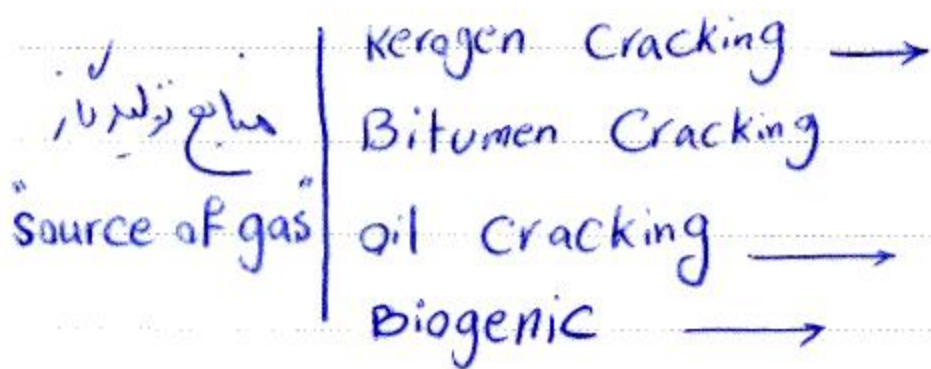 منابع تولید گاز
"source of gas"
Kerogen Cracking →
Bitumen Cracking
Oil Cracking →
Biogenic →